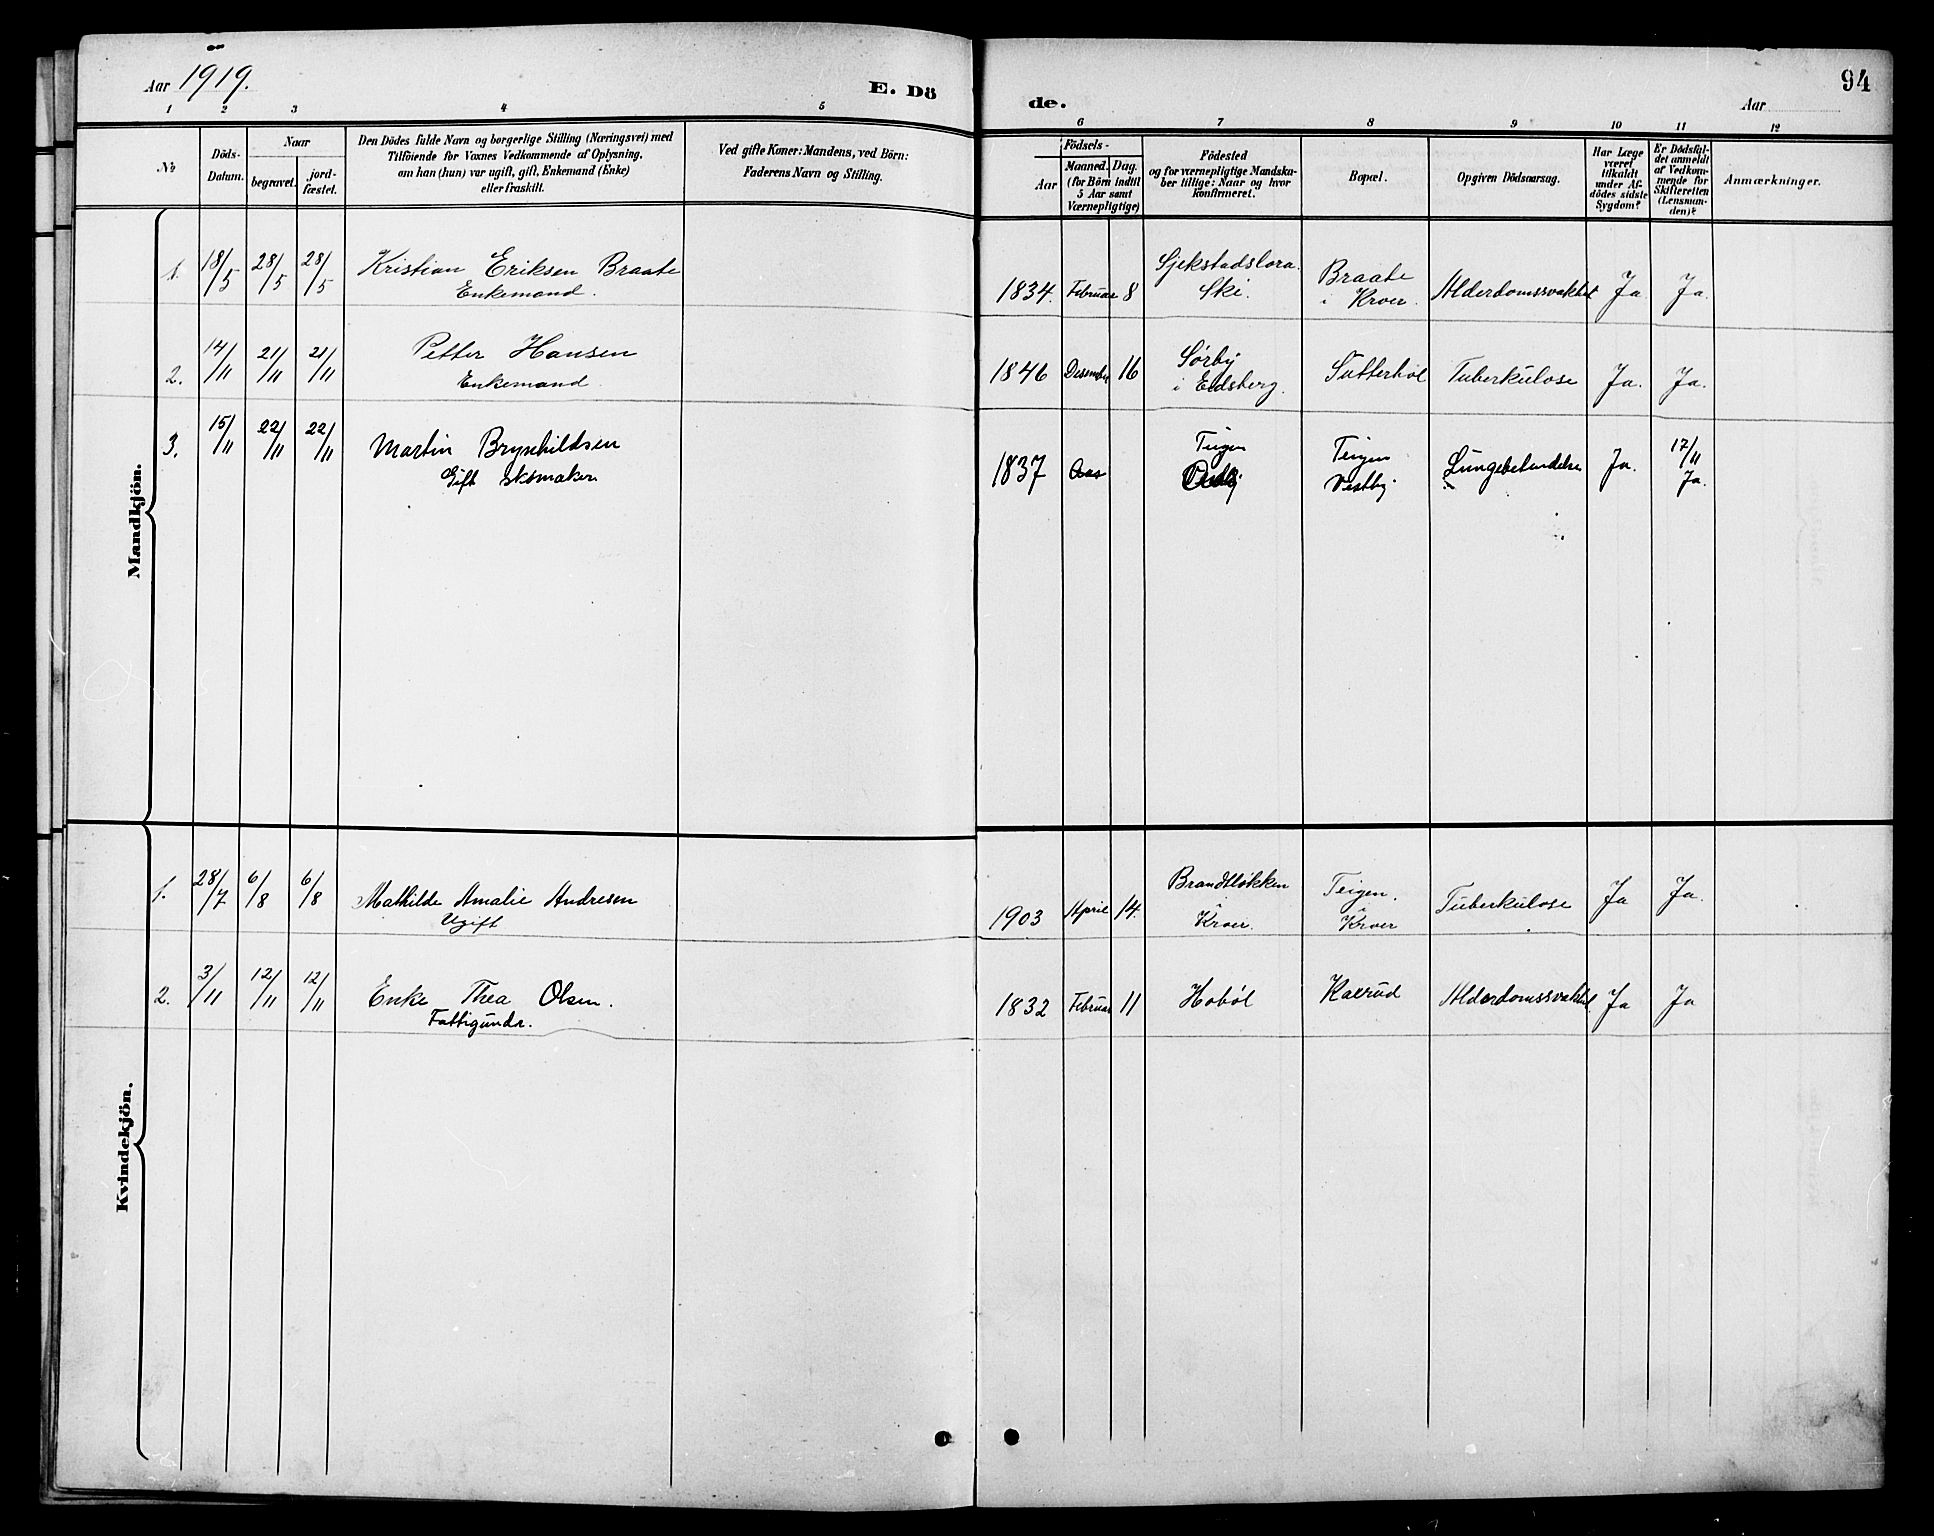 Aar 1919.
E. Dö
de.
Aar
94
1 2 3 4 5
6 7 8 9 10 11 12
No
Döds-
Datum.
Naar
begravet.
jord-
fæstet.
Den Dödes fulde Navn og borgerlige Stilling (Næringsvei) med
Tilföiende for Voxnes Vedkommende af Oplysning,
om han (hun) var ugift, gift, Enkemand (Enke)
eller fraskilt.
Ved gifte Koner: Mandens, ved Börn:
Faderens Navn og Stilling.
Födsels-
Aar
Maaned. Dag.
(for Börn indtil
5 Aar samt
Værnepligtige)
Födested
og for værnepligtige Mandska-
ber tillige: Naar og hvor
konfirmeret.
Bopæl.
Opgiven Dödsaarsag.
Har Læge
været
tilkaldt
under Af-
dödes sidste
Sygdom?
Er Dödsfal-
det anmeldt
af Vedkom-
mende for
Skifteretten
(Lensman-
den)?
Anmærkninger.
Mandkjön.
1. 18/5 28/5 28/5 Kristian Eriksen Braate
Enkemand.
1834. Februar 8
Ski.
Braate
i Kroer.
Alderdomssvakhet Ja Ja.
2. 14/11 21/11 21/11 Petter Hansen
Enkemand
1846 Desember 16 Sørby
i Eidsberg.
Sutterhol Tuberkulose Ja. Ja.
3. 15/11 22/11 22/11 Martin Brynhildsen
Gift Skomaker
1837 Aas
Teigen
Teigen
Vestby
Lungebetendelse Ja. 17/11
Ja.
Kvindekjön.
1. 28/7 6/8 6/8 Mathilde Amalie Andresen
Ugift
1903 April 14. Brandtløkken
i
Kroer.
Teigen.
i
Kroer
Tuberkulose Ja Ja.
2. 3/11 12/11 12/11 Enke Thea Olsen.
Fattigundr.
1832 Februar 11 Hobøl Kaerud Alderdomssvakhet. Ja Ja